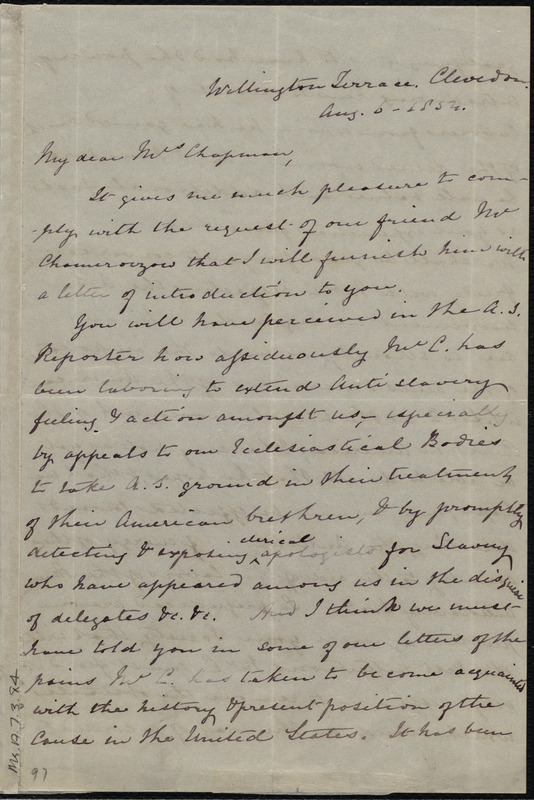 Wellington Terrace. Clevedon.
Aug. 5 - 1854.
My dear Mrs Chapman,
It gives me much pleasure to com-
-ply with the request of our friend Mr
Chamerovzow that I will furnish him with
a letter of introduction to you.
You will have perceived in the A. S.
Reporter how assiduously Mr C. has
been laboring to extend Anti slavery
feeling & action amongst us, especially
by appeals to our Ecclesiastical Bodies
to take A. S. ground in their treatment
of their American brethren, & by promptly
detecting & exposing clerical apologists for Slavery
who have appeared among us in the disguise
of delegates &c. &c. And I think we must
have told you in some of our letters of the
pains Mr C. has taken to become acquainted
with the history & present position of the
Cause in the United States. It has been
Ms. A. 7. 3. 84
97